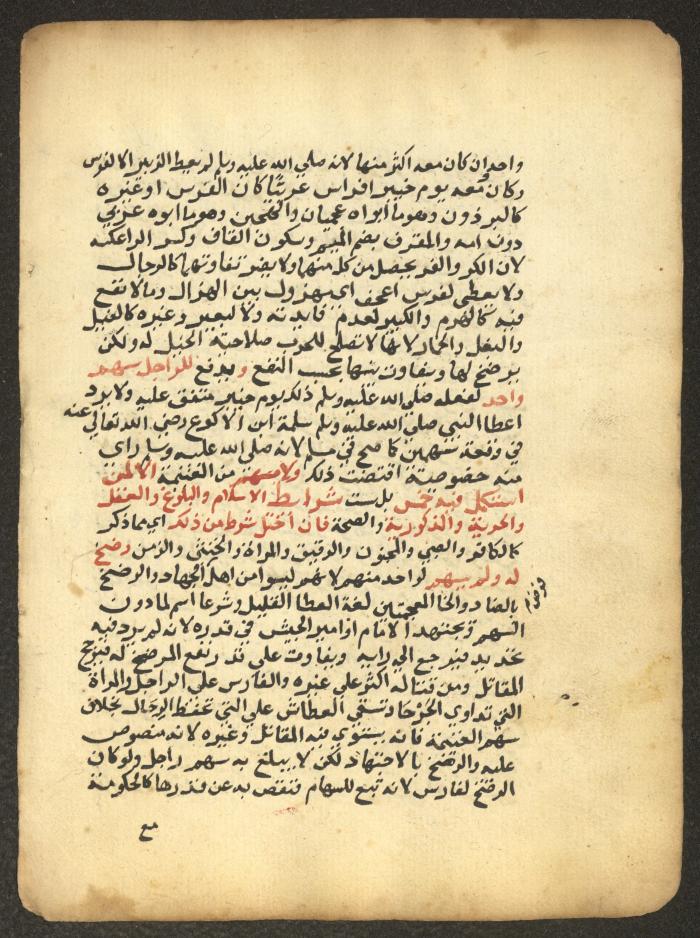 واحد وان كان معه اكثر منها لانه صلي الله عليه وسلم لم يعط الزبير الا لفرس
وكان معه يوم خيبر افراس عربيّا كان الفرس او غيره
كالبرذون وهو ما ابواه عجميان والهجين وهو ما ابوه عربي
دون امه والمقرف بضم الميم وسكون القاف وكسر الرا عكسه
لان الكر والفر يحصل من كل منهما ولا يضر تفاوتهما كالرجال
ولا يعطي لفرس اعجف اي مهزول بين الهزال وما لا نفع
فيه كالهرم والكبير لعدم فايدته ولا لبعير وغيره كالفيل
والبغل والحمار لانها لا تصلح للحرب صلاحية الخيل له ولكن
يرضخ لها ويتفاوت بينها بحسب النفع ويدفع للراجل سهم
واحد لفعله صلي الله عليه وسلم ذلك يوم خيبر متفق عليه ولا يرد
اعطا النبي صلي الله عليه وسلم سلمة ابن الاكوع رضي الله تعالي عنه
في وقعة سهمين كما صح في مسلم لانه صلي الله عليه وسلم راي
منه خصوصية اقتضت ذلك ولا يسهم من الغنيمة الا لمن
استكمل فيه خمس بل ست شرايط الاسلام والبلوغ والعقل
والحرية والذكورية والصحة فان اختل شرط من ذلك اي مما ذكر
كالكافر والصبي والمجنون والرقيق والمراة والخنثي والزمن رضخ
له ولم يسهم لواحد منهم لانهم ليسوا من اهل الجهاد والرضخ
بالضاد والخا المعجمتين لغة العطا القليل وشرعا اسم لما دون
السهم ويجتهد الامام او امير الجيش في قدره لانه لم يرد فيه
تحديد فيرجع الي رايه ويفاوت علي قدر نفع المرضخ له فيرجح
المقاتل ومن قتاله اكثر علي غيره والفارس علي الراجل والمراة
التي تداوي الجرحا وتسقي العطاش علي التي تحفظ الرحال بخلاف
سهم الغنيمة فانه يستوي فيه المقاتل وغيره لانه منصوص
عليه والرضخ بالاجتهاد لكن لا يبلغ به سهم راجل ولو كان
الرضخ لفارس لانه تبع للسهام فنقص به عن قدرها كالحكومة
مع